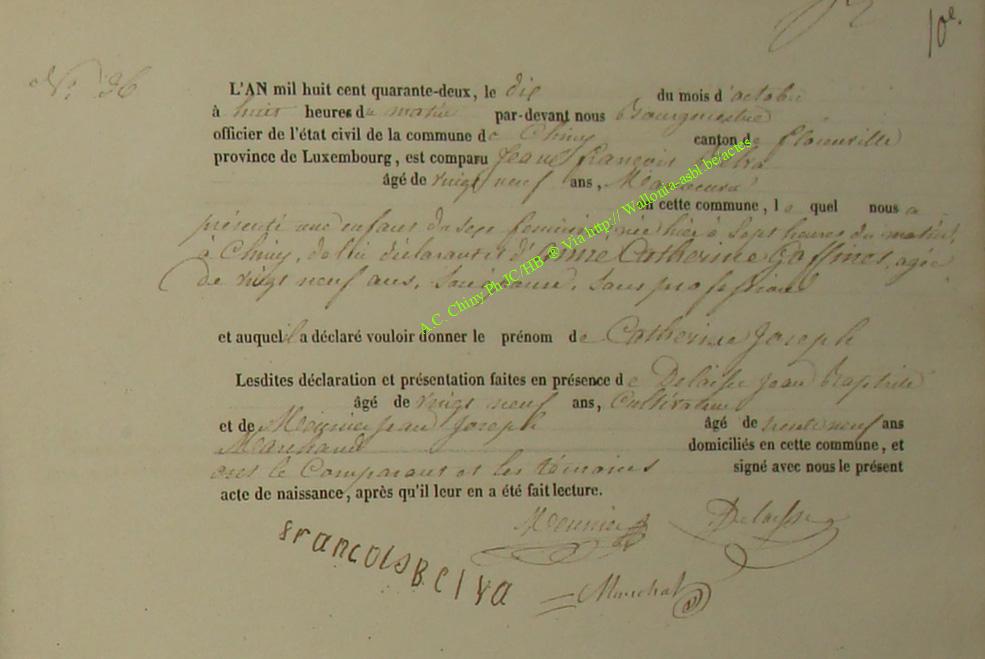 10e.
No. 36
L'AN mil huit cent quarante-deux, le dix du mois d'octobre
à huit heures du matin par-devant nous Bourgmestre
officier de l'état civil de la commune de Chiny canton de Florenville
province de Luxembourg, est comparu Jean François
âgé de vingt neuf ans,
en cette commune, le quel nous a
présenté une enfant du sexe féminin, née hier à sept heures du matin,
à Chiny, de lui déclarant et d'Anne Catherine Goffinet, agée
de vingt neuf ans, son épouse, sans profession
et auquel il a déclaré vouloir donner le prénom de Catherine Joseph
Lesdites déclaration et présentation faites en présence de Delaisse Jean Baptiste
âgé de vingt neuf ans, Cultivateur
et de Meunier Jean Joseph âgé de trente neuf ans
Marchand domiciliés en cette commune, et
ont le Comparant et les témoins signé avec nous le présent
acte de naissance, après qu'il leur en a été fait lecture.
Meunier Delaisse
François B
Marechal
A.C. Chiny Ph JC/HB ® Via http:// Wallonia-asbl be/actes